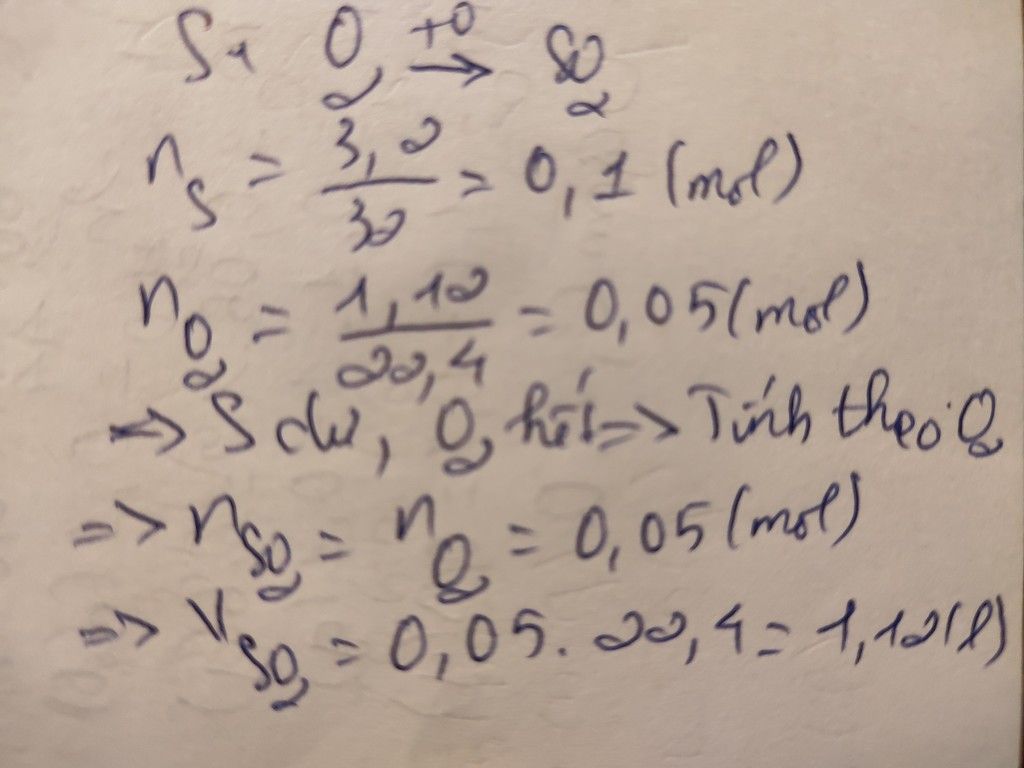 S + O2 +o→ SO2
nS = 3,2/32 = 0,1 (mol)
nO2 = 1,12/22,4 = 0,05 (mol)
=> S dư, O2 hết => Tính theo O2
=> nSO2 = nO2 = 0,05 (mol)
=> VSO2 = 0,05 . 22,4 = 1,12 (l)